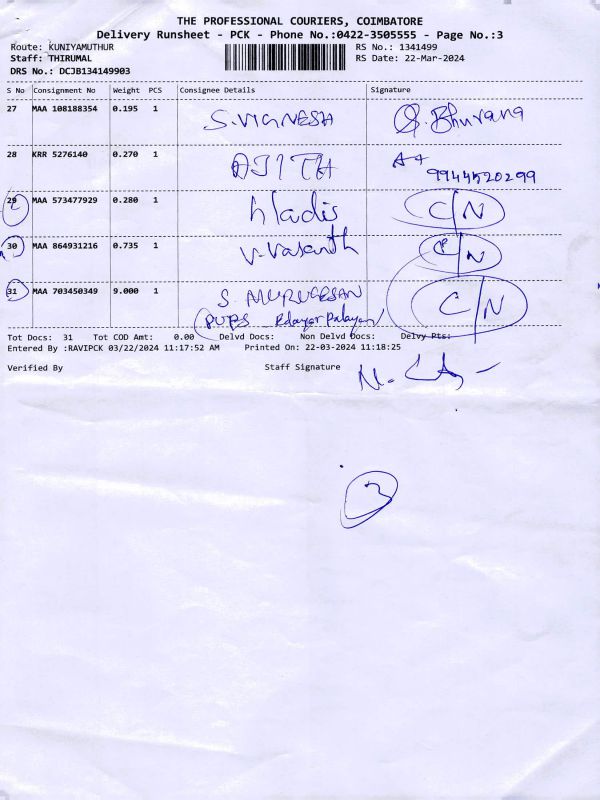 THE PROFESSIONAL COURIERS, COIMBATORE
Delivery Runsheet - PCK - Phone No.:0422-3505555 - Page No.:3
Route: KUNIYAMUTHUR RS No.: 1341499
Staff: THIRUMAL RS Date: 22-Mar-2024
DRS No.: DCJB134149903
S No Consignment No Weight PCS Consignee Details Signature
27 MAA 108188354 0.195 1 S.VIGNESH S.Bhuvana
28 KRR 5276140 0.270 1 AJITH
9944520299
29 MAA 573477929 0.280 1 C/N
30 MAA 864931216 0.735 1 V.Vasanth C/N
31 MAA 703450349 9.000 1 S. MURUGESAN C/N
PUPS Edayarpalayam
Tot Docs: 31 Tot COD Amt: 0.00 Delvd Docs: Non Delvd Docs: Delvy Pts:
Entered By :RAVIPCK 03/22/2024 11:17:52 AM Printed On: 22-03-2024 11:18:25
Verified By Staff Signature
3